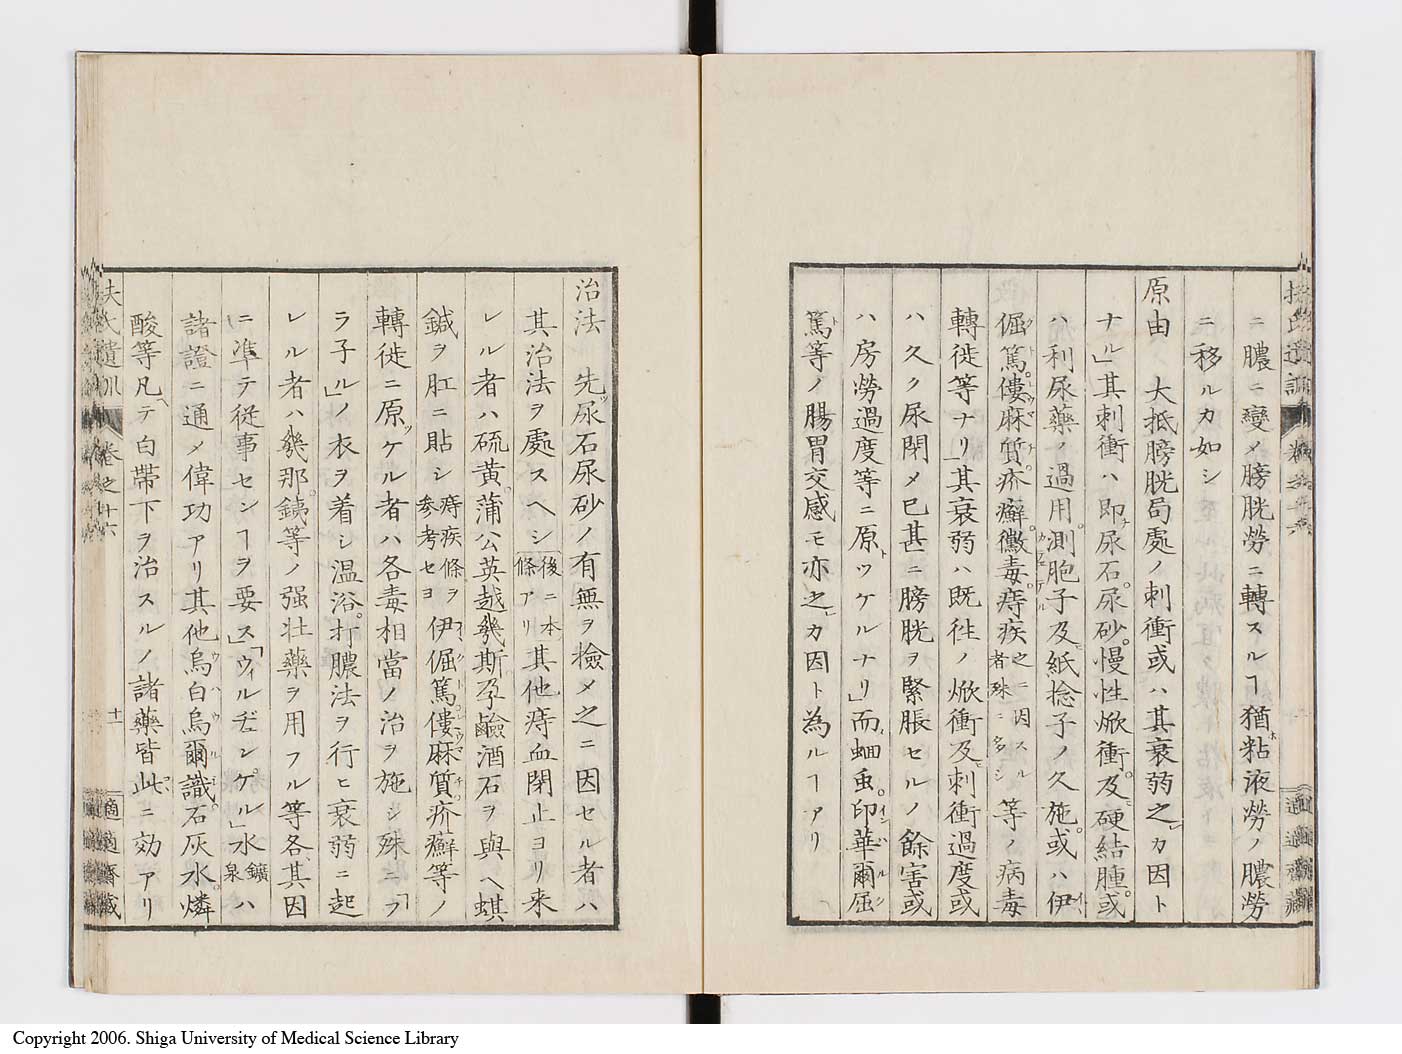 ニ膿ニ變メ膀胱勞ニ轉スルヿ猶粘液勞ノ膿勞
ニ移ルカ如シ
原由 大抵膀胱局處ノ刺衝或ハ其衰弱之カ因ト
ナル」其刺衝ハ即尿石。尿砂。慢性焮衝。及硬結腫。或
ハ利尿藥ノ過用。測胞子及紙捻子ノ久施。或ハ伊
倔篤僂麻質疥癬黴毒。痔疾之ニ因スル者殊ニ多シ等ノ病毒
轉徙等ナリ」其衰弱ハ既往ノ焮衝及刺衝過度或
ハ久ク尿閉メ已甚ニ膀胱ヲ緊脹セルノ餘害或
ハ房勞過度等ニ原ツケルナリ」而蛔虫。印華爾屈
篤等ノ腸胃交感モ亦之カ因ト為ルヿアリ
治法 先尿石尿砂ノ有無ヲ撿メ之ニ因セル者ハ
其治法ヲ處スヘシ後ニ本條アリ其他痔血閉止ヨリ来
レル者ハ硫黄。蒲公英越幾斯孕鹼酒石ヲ與ヘ蜞
鍼ヲ肛ニ貼シ痔疾條ヲ參考セヨ伊倔篤僂麻質疥癬等ノ
轉徙ニ原ツケル者ハ各毒相當ノ治ヲ施シ殊ニ「フ
ラ子ル」ノ衣ヲ着シ温浴。打膿法ヲ行ヒ衰弱ニ起
レル者ハ幾那。銕等ノ强壮藥ヲ用フル等各其因
ニ凖テ從事センヿヲ要ス」「ウィルヂュンゲル」水鑛泉ハ
諸證ニ通メ偉功アリ其他烏白烏爾識石灰水。燐
酸等凡テ白帶下ヲ治スルノ諸藥皆此ニ効アリ
扶氏遺訓 卷之十六 十一 適適齋藏